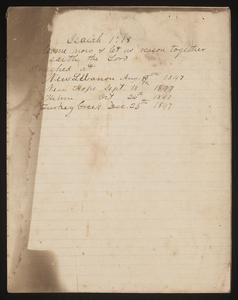 Isaiah 1:18
Come now & let us reason together
saith the Lord
Preached at
New Lebanon Aug. 1847
New Hope Sept. 1847
Oct. 24th 1847
Turkey Creek Dec. 25th 1847